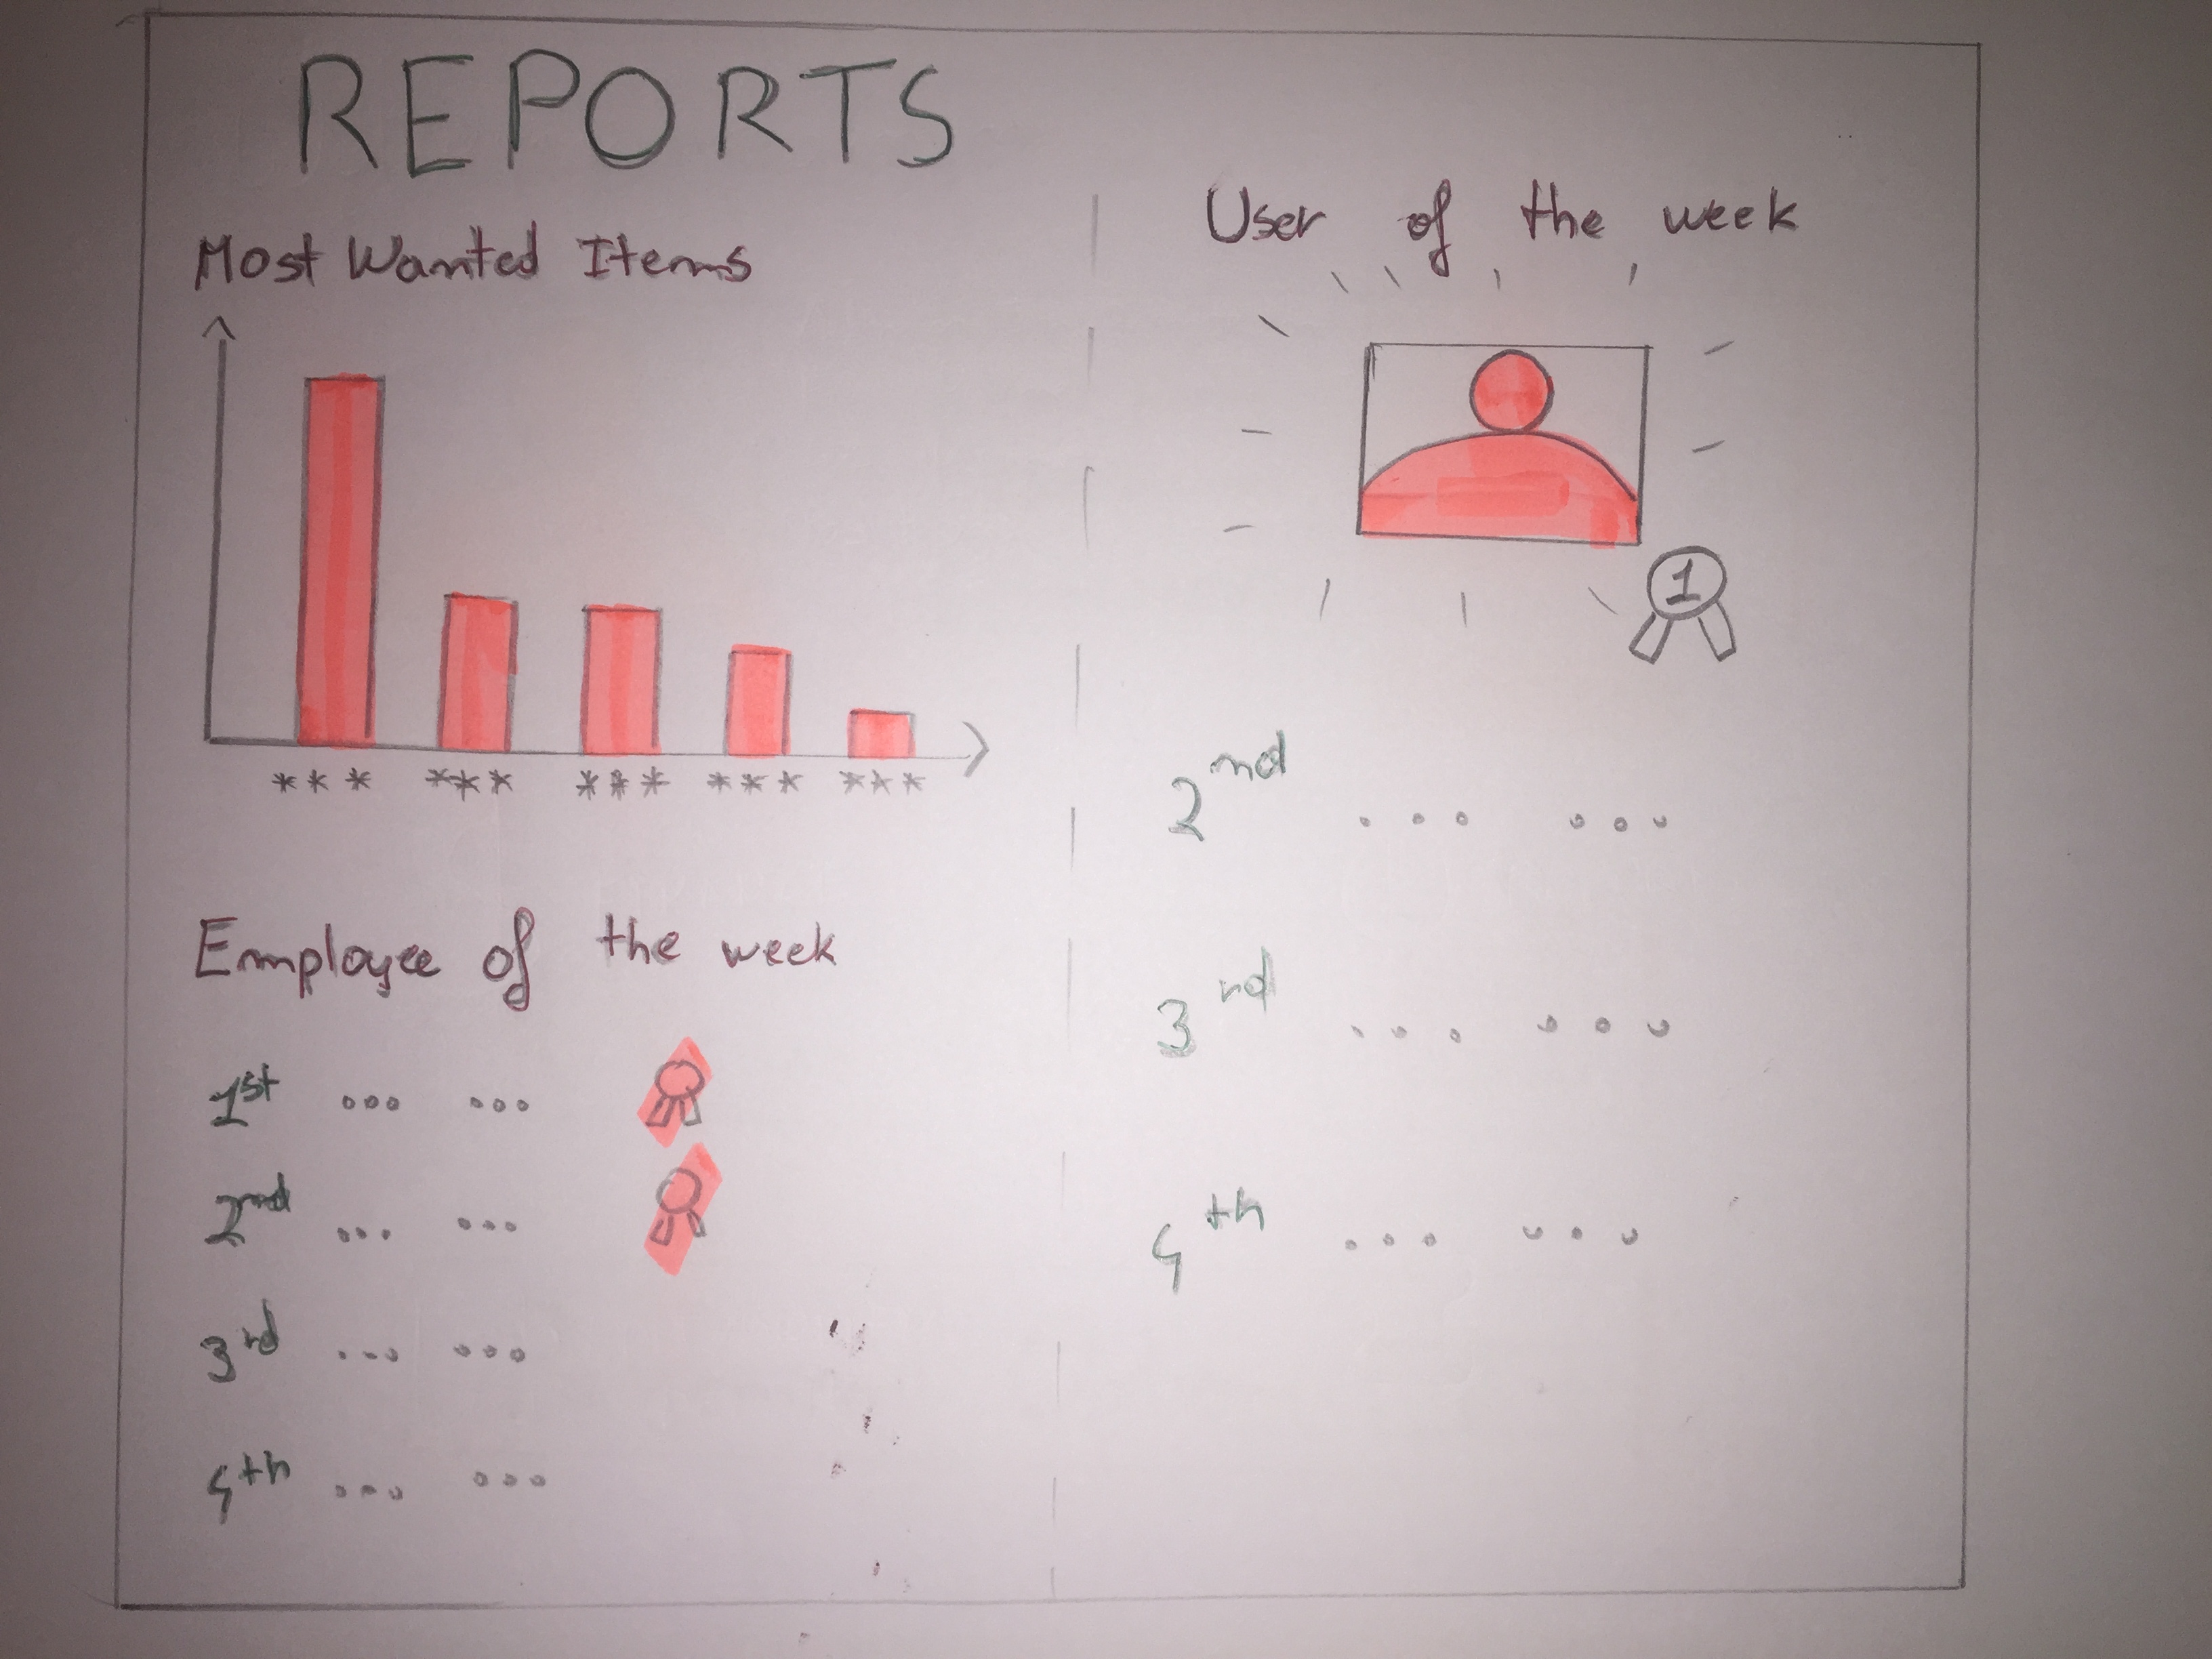 REPORTS
Most Wanted Items
*** *** *** *** ***
Employee of the week
1st ... ...
2nd ... ...
3rd ... ...
4th ... ...
User of the week
1
2nd ... ...
3rd ... ...
4th ... ...